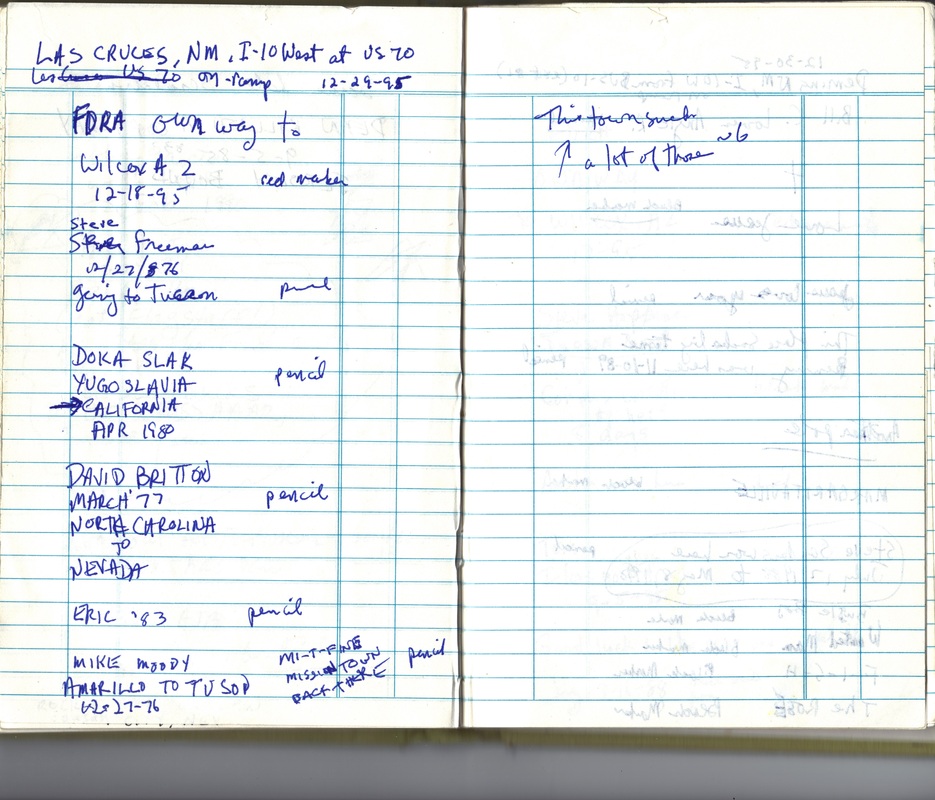 LAS CRUCES, NM, I-10 West at US 70
US 70 on-ramp 12-29-95
FDRA own way to
Wilcox A 2 red maker
12-18-95
Steve
Freeman
12/27/76
going to Tucson
DOKA SLAK
YUGOSLAVIA pencil
→ CALIFORNIA
APR 1980
DAVID BRITTON
MARCH '77 pencil
NORTH CAROLINA
TO
NEVADA
ERIC '83 pencil
MIKE MOODY
AMARILLO TO TUSOD
12-27-76
MI-T-FINE
MISSION TOWN
BACK THERE
pencil
This town sucks
↑ a lot of those